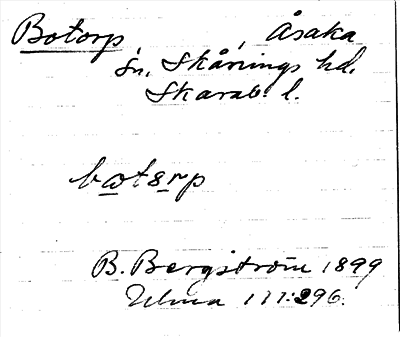 Botorp, Åsaka
sn, Skånings hd.
Skarab. l.
botorp
B. Bergström 1899
Ulma 111:296.